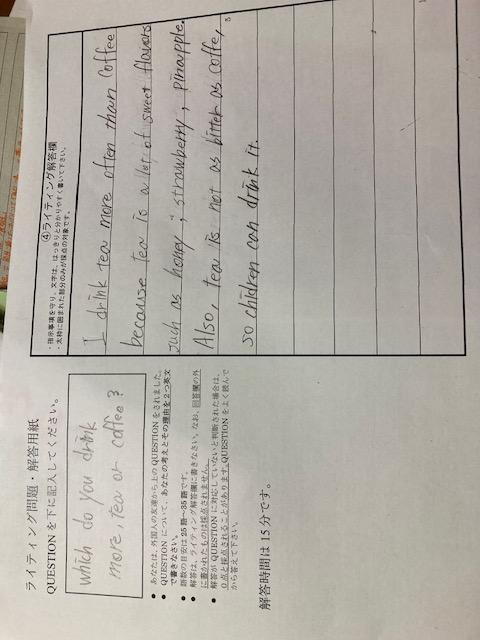 ライティング問題・解答用紙
QUESTION を下に記入してください。
which do you drink
more, tea or coffee?
● あなたは、外国人の友達から上の QUESTION をされました。
● QUESTION について、あなたの考えとその理由を2つ英文
で書きなさい。
● 語数の目安は 25 語～35 語です。
● 解答は、ライティング解答欄に書きなさい。なお、回答欄の外
に書かれたものは採点されません。
● 解答が QUESTION に対応していないと判断された場合は、
0 点と採点されることがあります。QUESTION をよく読んで
から答えて下さい。
解答時間は 15 分です。
④ライティング解答欄
・指示事項を守り、文字は、はっきりと分かりやすく書いて下さい。
・太枠に囲まれた部分のみが採点の対象です。
I drink tea more often than coffee
because tea is a lot of sweet flavors
such as honey, strawberry, pinapple.
Also, tea is not as bitter as coffe,
so children can drink it.